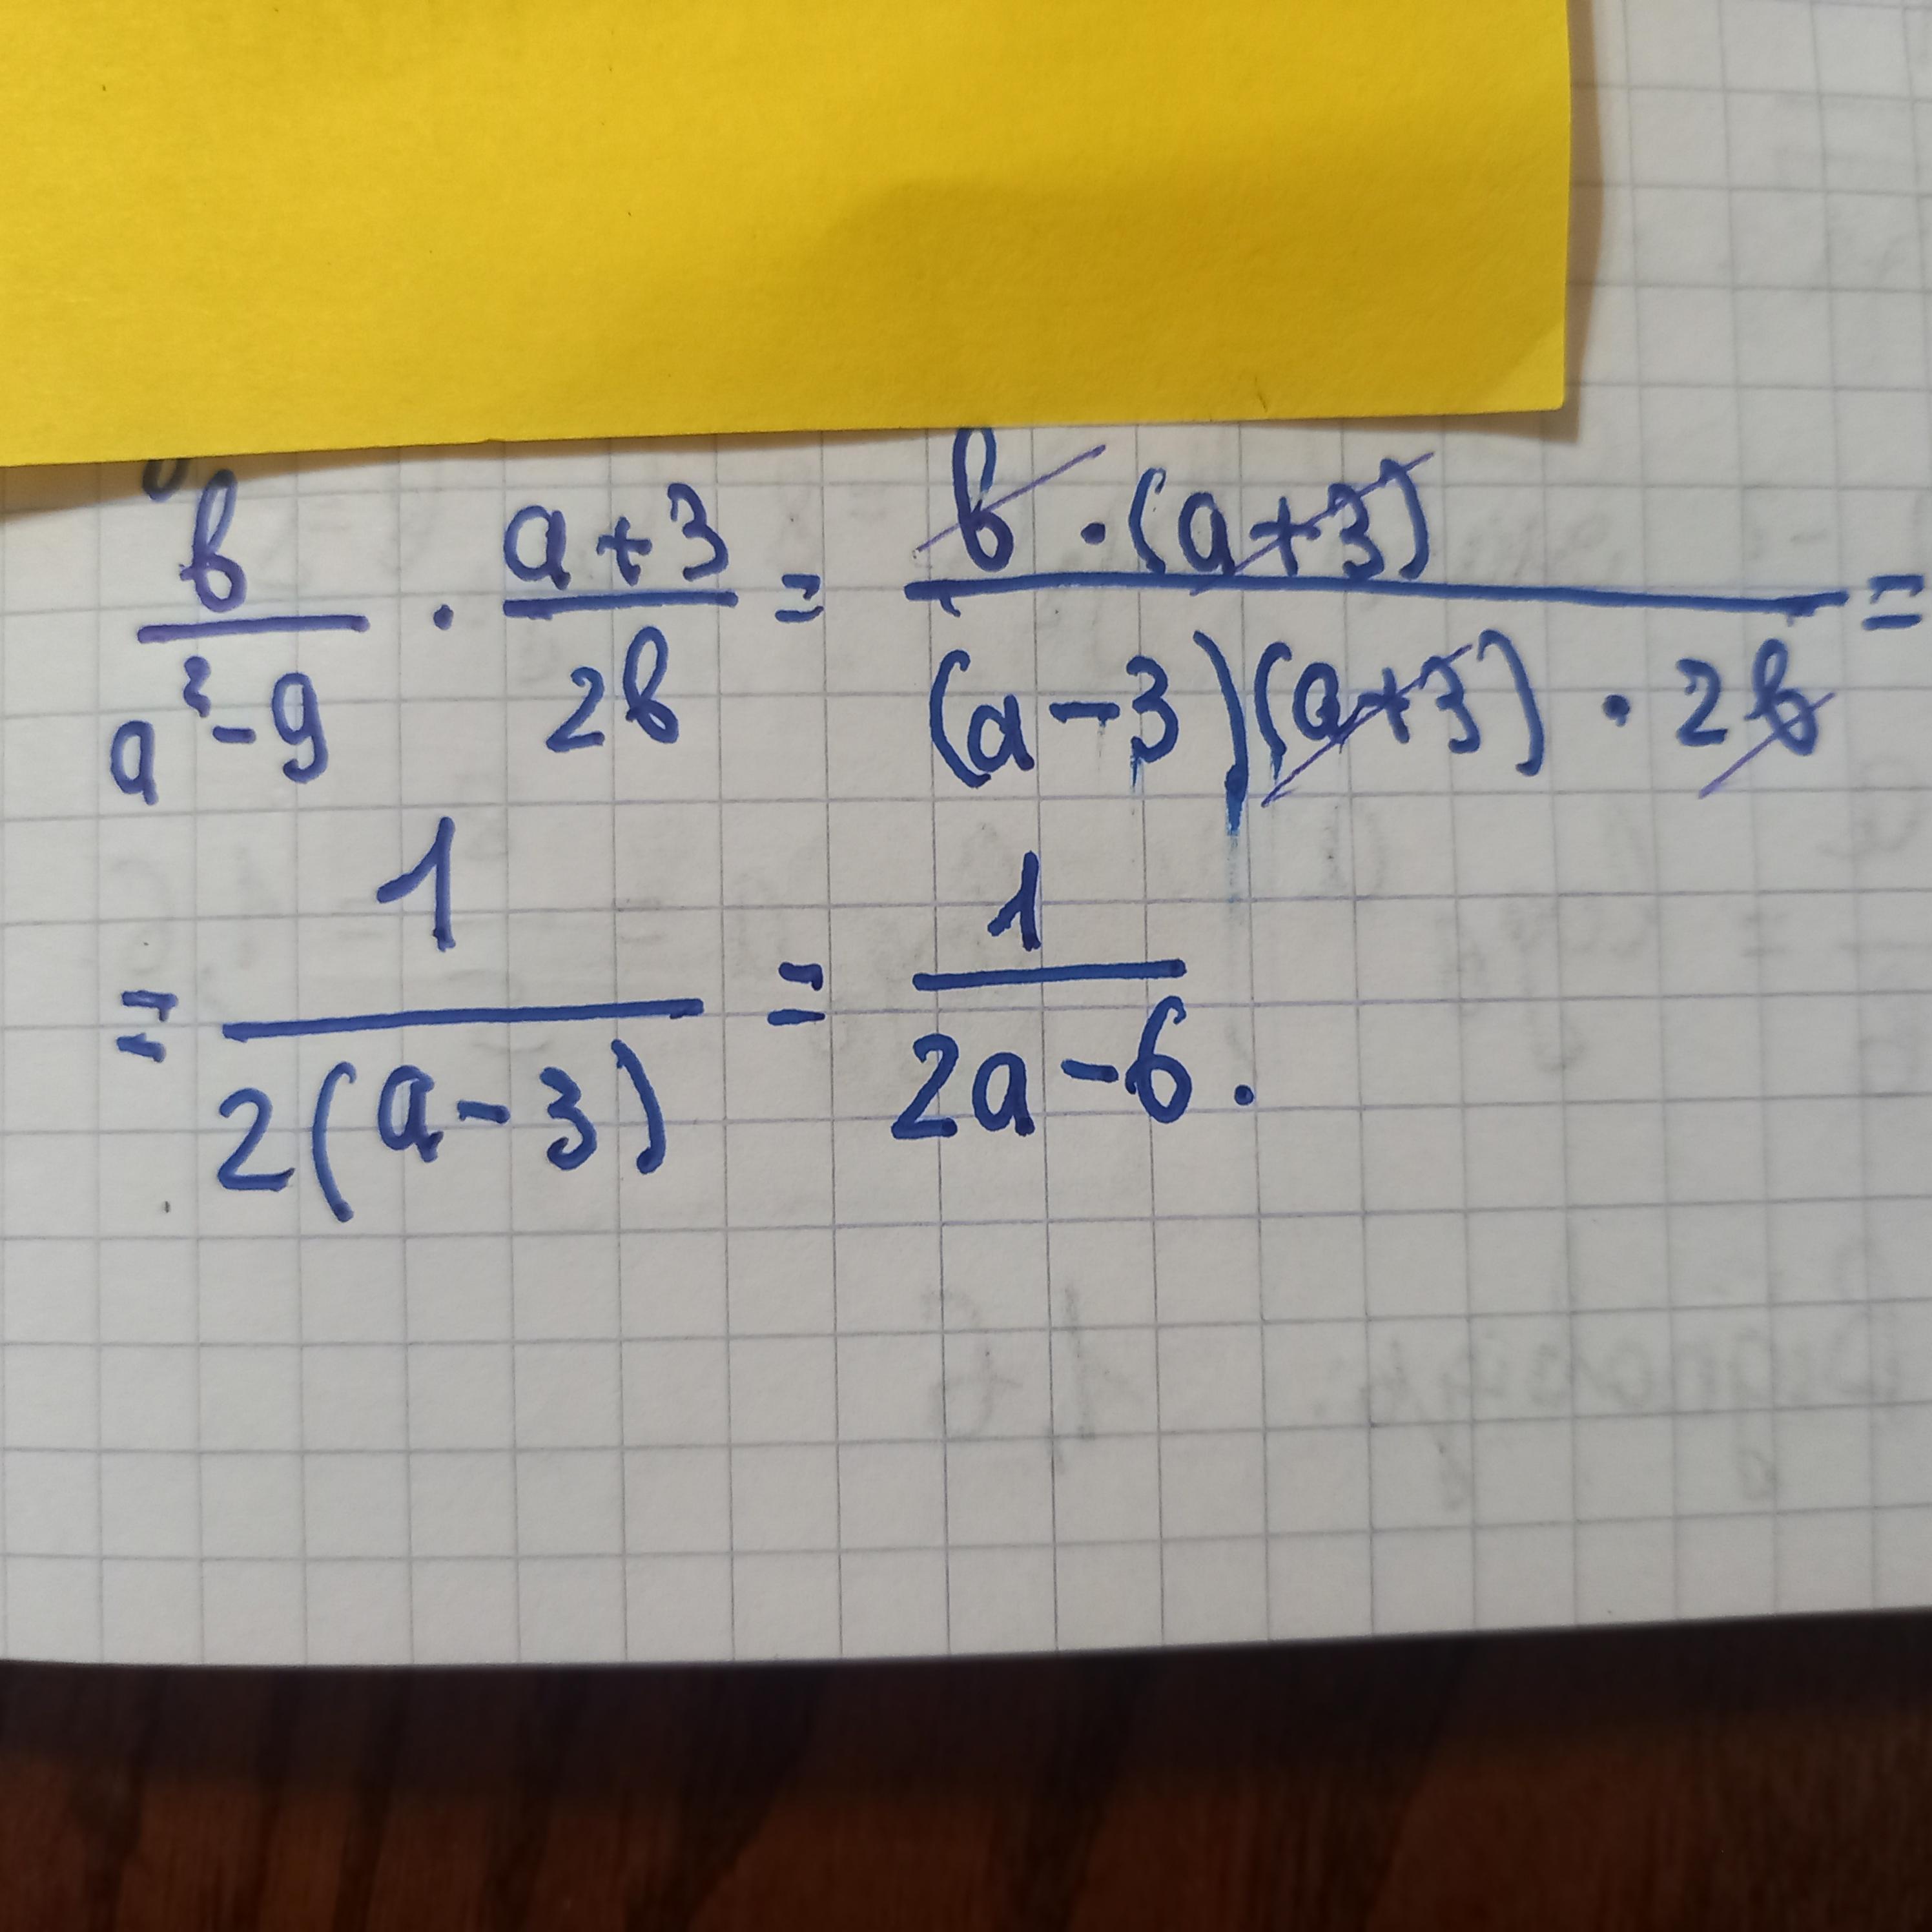 в/(a²-9) · (a+3)/(2в) = (в·(a+3))/((a-3)(a+3)·2в) =
= 1/(2(a-3)) = 1/(2a-6).